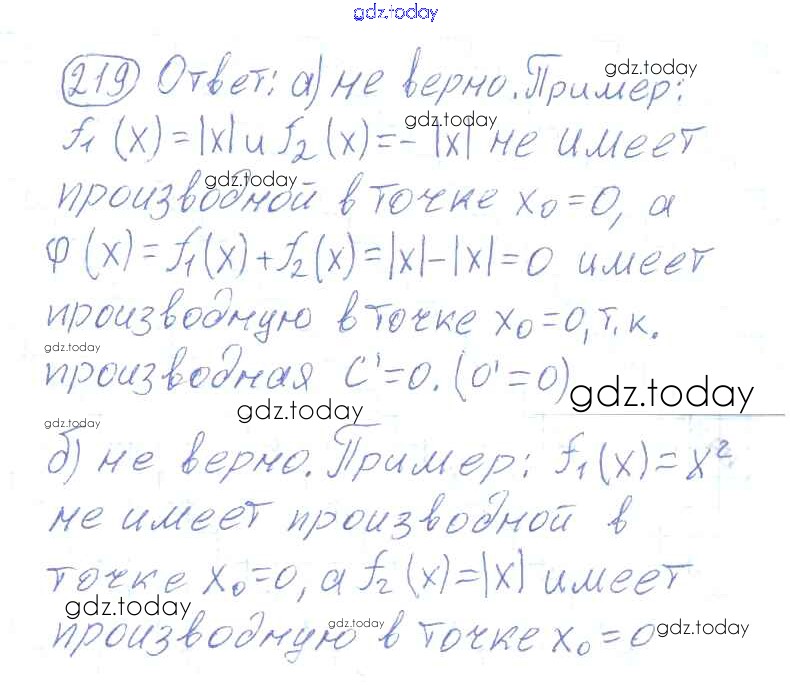 gdz.today
219 Ответ: а) не верно. Пример: gdz.today
f₁(x) = |x| и f₂(x) = - |x| не имеет gdz.today
производной в точке x₀ = 0, а gdz.today
φ(x) = f₁(x) + f₂(x) = |x| - |x| = 0 имеет
производную в точке x₀ = 0, т.к.
gdz.today
производная C' = 0. (0' = 0) gdz.today
gdz.today gdz.today
б) не верно. Пример: f₁(x) = x²
не имеет производной в
точке x₀ = 0, а f₂(x) = |x| имеет
gdz.today
производную в точке x₀ = 0 gdz.today gdz.today